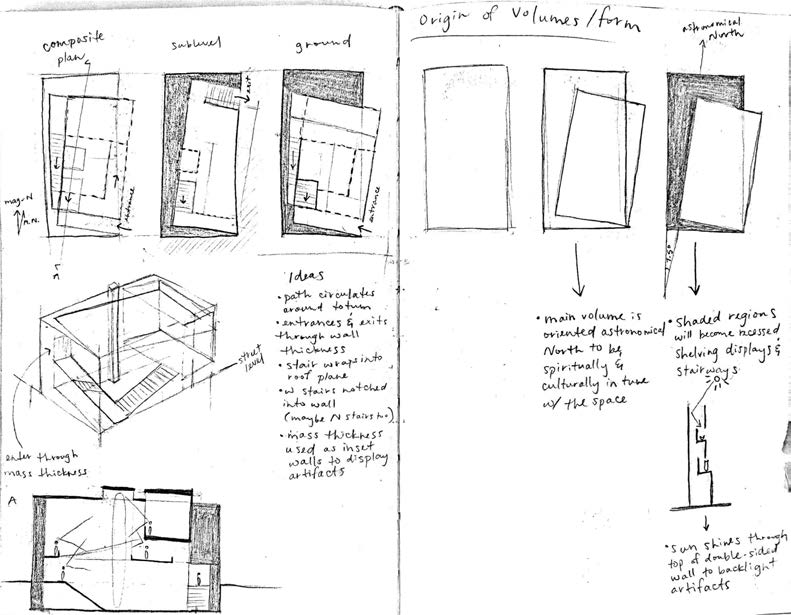 composite
plan
sublevel
ground
exit
mag. N
entrance
entrance
n
Ideas
• path circulates
around totem
• entrances & exits
through wall
thickness
• stair wraps into
roof plane
• w stairs notched
into wall
(maybe N stairs too)
• mass thickness
used as inset
walls to display
artifacts
street
level
enter through
mass thickness
A
Origin of Volumes/form
astronomical
North
• main volume is
oriented astronomical
North to be
spiritually &
culturally in tune
w/ the space
• Shaded regions
will become recessed
shelving displays &
stairways
• sun shines through
top of double-sided
wall to backlight
artifacts